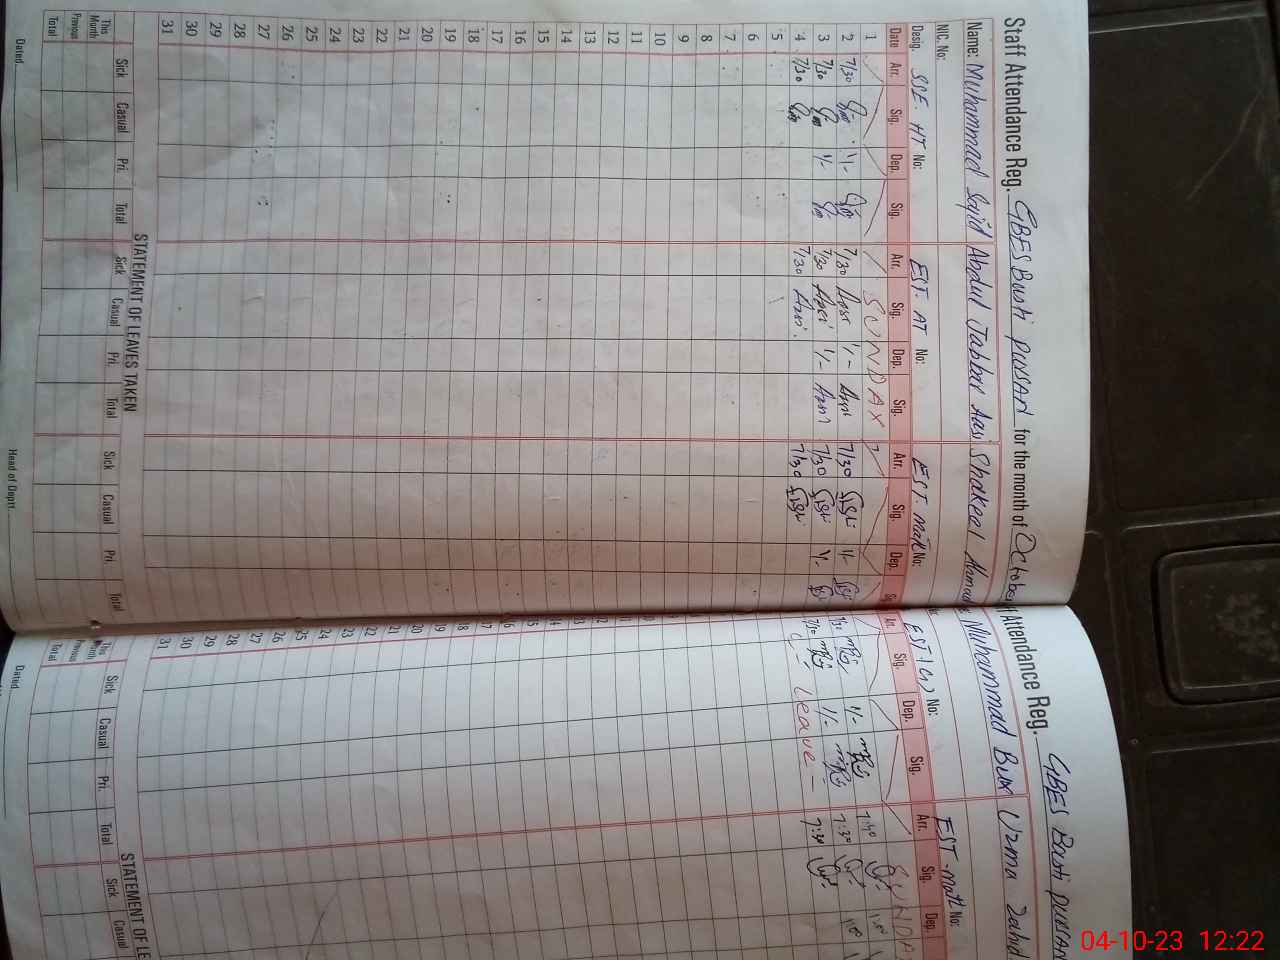 Staff Attendance Reg. GBES Basti for the month of October
Name: Muhammad Sajid Abdul Jabbar Aasi Shakeel Ahmad
NIC. No:
Desig. SSE. HT No: EST. AT No: EST. math No:
Date Arr. Sig. Dep. Sig. Arr. Sig. Dep. Sig. Arr. Sig. Dep.
1 SUNDAY
2 7/30 1/- 7/30 1/- 7/30 1/-
3 7/30 1/- 7/30 1/- 7/30 1/-
4 7/30 7/30 7/30
5
6
7
8
9
10
11
12
13
14
15
16
17
18
19
20
21
22
23
24
25
26
27
28
29
30
31
STATEMENT OF LEAVES TAKEN
Sick Casual Pri. Total Sick Casual Pri. Total Sick Casual Pri. Total
This Month
Previous
Total
Dated Head of Deptt.
Attendance Reg. GBES Basti
Muhammad Bux Uzma Zahid
No: EST-math No:
Arr. Sig. Dep. Sig. Arr. Sig. Dep.
SUNDA
1/- 7:40
7/30 1/- 7:30
Leave 7:30
16
17
18
19
20
21
22
23
24
25
26
27
28
29
30
31
STATEMENT OF LE
Sick Casual Pri. Total Sick Casual
This Month
Previous
Total
Dated
04-10-23 12:22